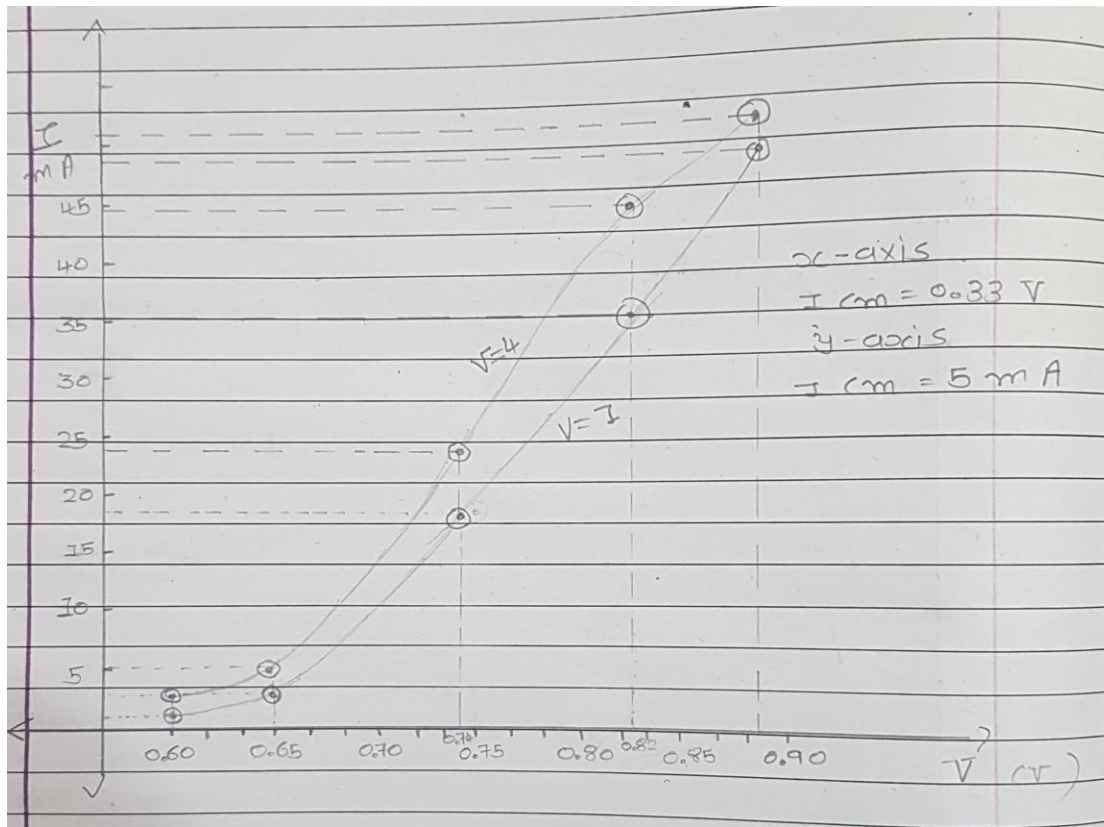 I
mA
45
40
35
30
25
20
15
10
5
V=4
V=1
x-axis
1 cm = 0.33 V
y-axis
1 cm = 5 mA
0.60 0.65 0.70 0.74 0.75 0.80 0.82 0.85 0.90
V (V)